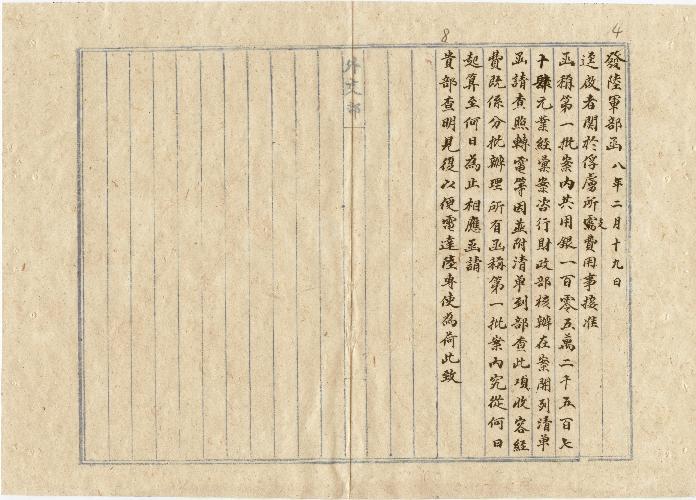 4
8
發陸軍部函 八年二月十九日
逕啟者關於俘虜所需費用事接准
函稱第一批案内共用銀一百零五萬二千五百七
十肆元業經彙案咨行財政部核辦在案開列清單
函請查照轉電等因並附清單到部查此項收容經
費既係分批辦理所有函稱第一批案内究從何日
起算至何日為止相應函請
貴部查明見復以便電達陸專使為荷此致
外交部